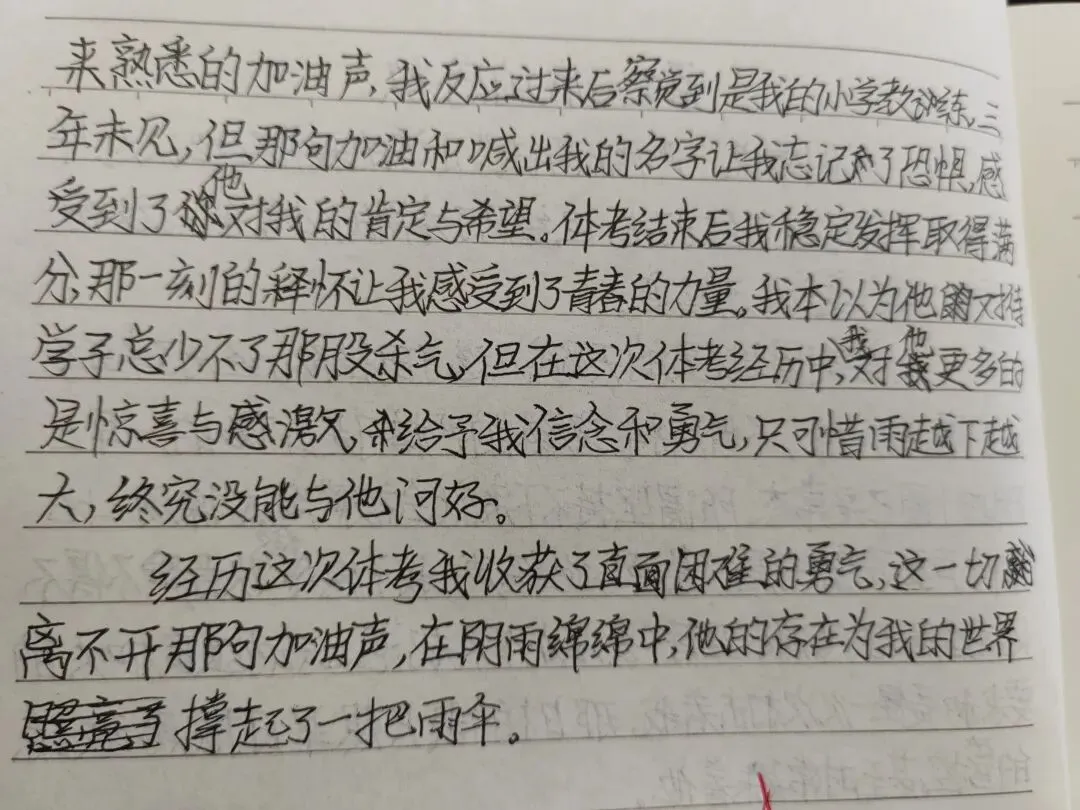 来熟悉的加油声,我反应过来后察觉到是我的小学教练,三
年未见,但那句加油和喊出我的名字让我忘记了恐惧,感
受到了他对我的肯定与希望。体考结束后我稳定发挥取得满
分,那一刻的释怀让我感受到了青春的力量。我本以为他对
学子总少不了那股杀气,但在这次体考经历中,我对他更多的
是惊喜与感激,给予我信念和勇气,只可惜雨越下越
大,终究没能与他问好。
经历这次体考我收获了直面困难的勇气,这一切
离不开那句加油声,在阴雨绵绵中,他的存在为我的世界
撑起了一把雨伞。